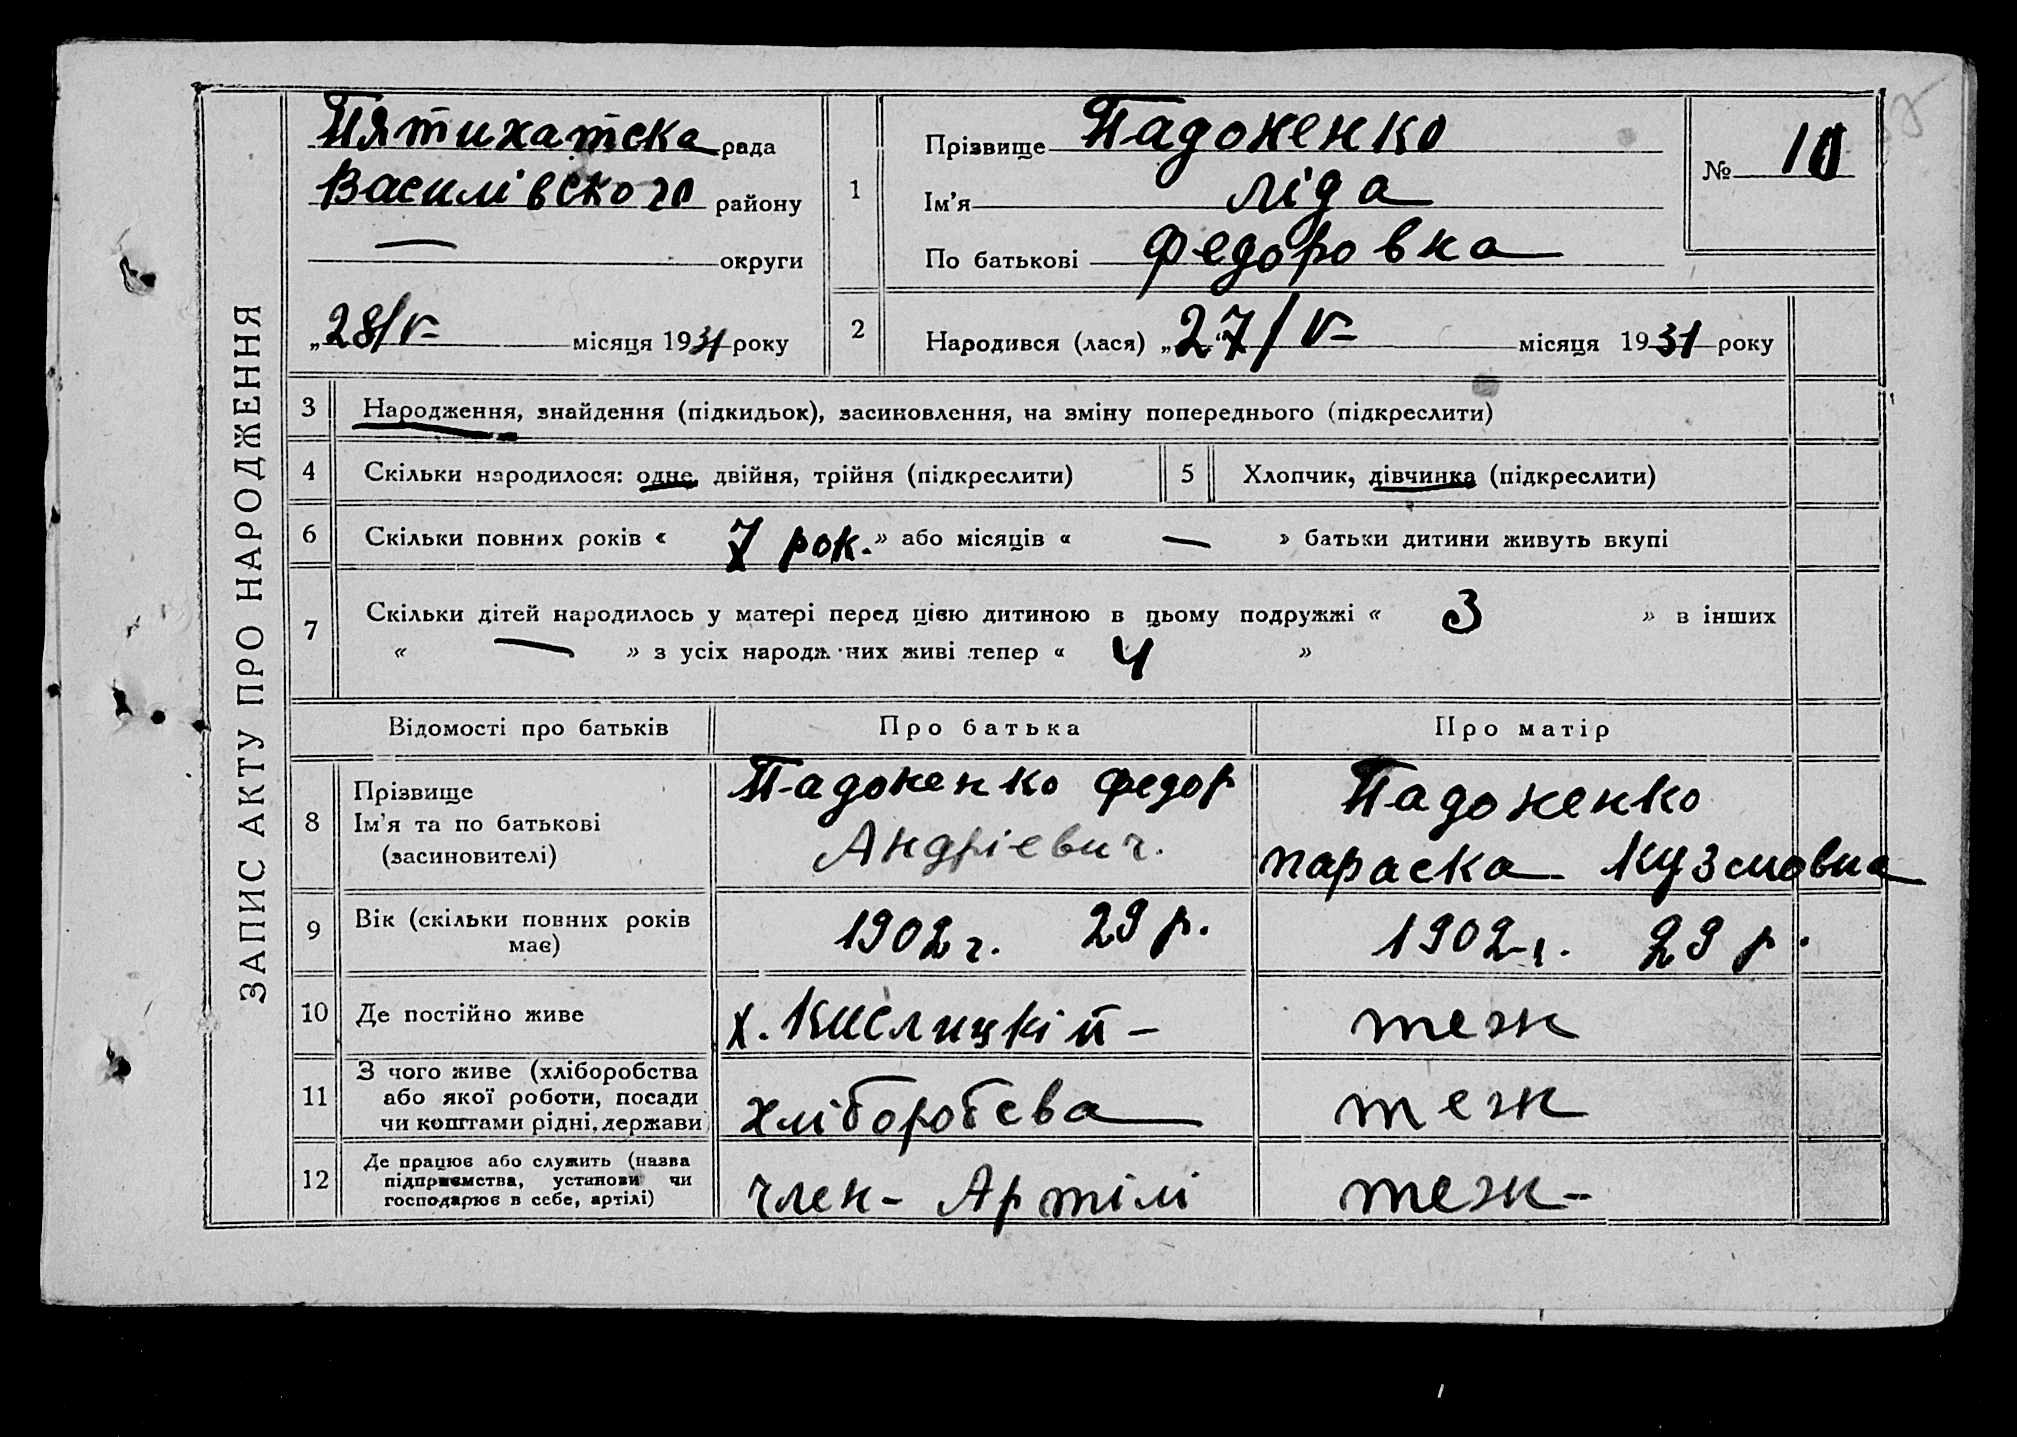 ЗАПИС АКТУ ПРО НАРОДЖЕННЯ
Пятихатска рада
Василівского району
— округи
„28/V- місяця 1931 року
1
Прізвище Падоненко
Ім'я Ліда
По батькові Федоровна
№ 10
2
Народився (лася) „27/V- місяця 1931 року
3 Народження, знайдення (підкидьок), засиновлення, на зміну попереднього (підкреслити)
4 Скільки народилося: одне, двійня, трійня (підкреслити)
5 Хлопчик, дівчинка (підкреслити)
6 Скільки повних років « 7 рок. » або місяців « — » батьки дитини живуть вкупі
7 Скільки дітей народилось у матері перед цією дитиною в цьому подружжі « 3 » в інших
« — » з усіх народж них живі тепер « 4 »
Відомості про батьків Про батька Про матір
8 Прізвище
Ім'я та по батькові
(засиновителі)
Падоненко Федор
Андріевич.
Падоненко
Параска Кузмовна
9 Вік (скільки повних років
має)
1902 г. 29 р.
1902 г. 29 р.
10 Де постійно живе х. Кислицкій - теж
11 З чого живе (хліборобства
або якої роботи, посади
чи коштами рідні, держави
хліборобсва
теж
12 Де працює або служить (назва
підприємства, установи чи
господарює в себе, артілі)
член - Артілі
теж -